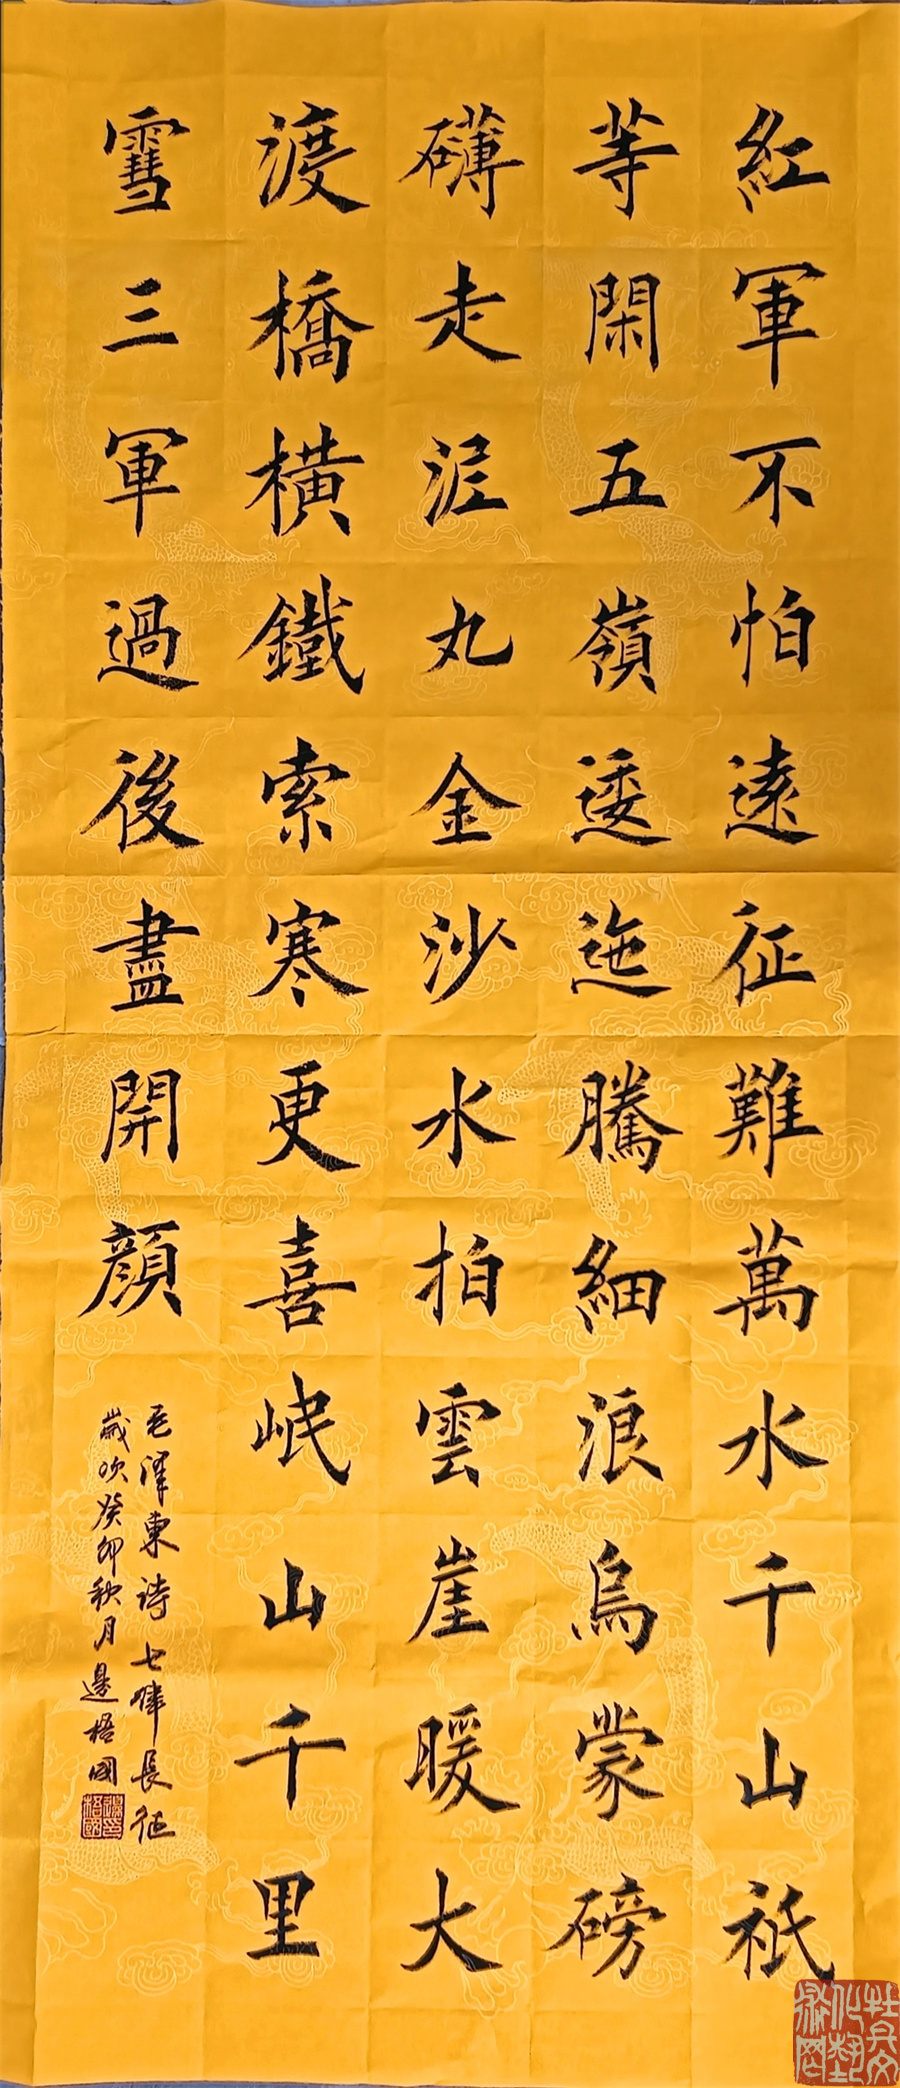 紅軍不怕遠征難萬水千山祇
等閑五嶺逶迤騰細浪烏蒙磅
礴走泥丸金沙水拍雲崖暖大
渡橋橫鐵索寒更喜岷山千里
雪三軍過後盡開顔
毛澤東詩七律長征
歲次癸卯秋月邊梧國